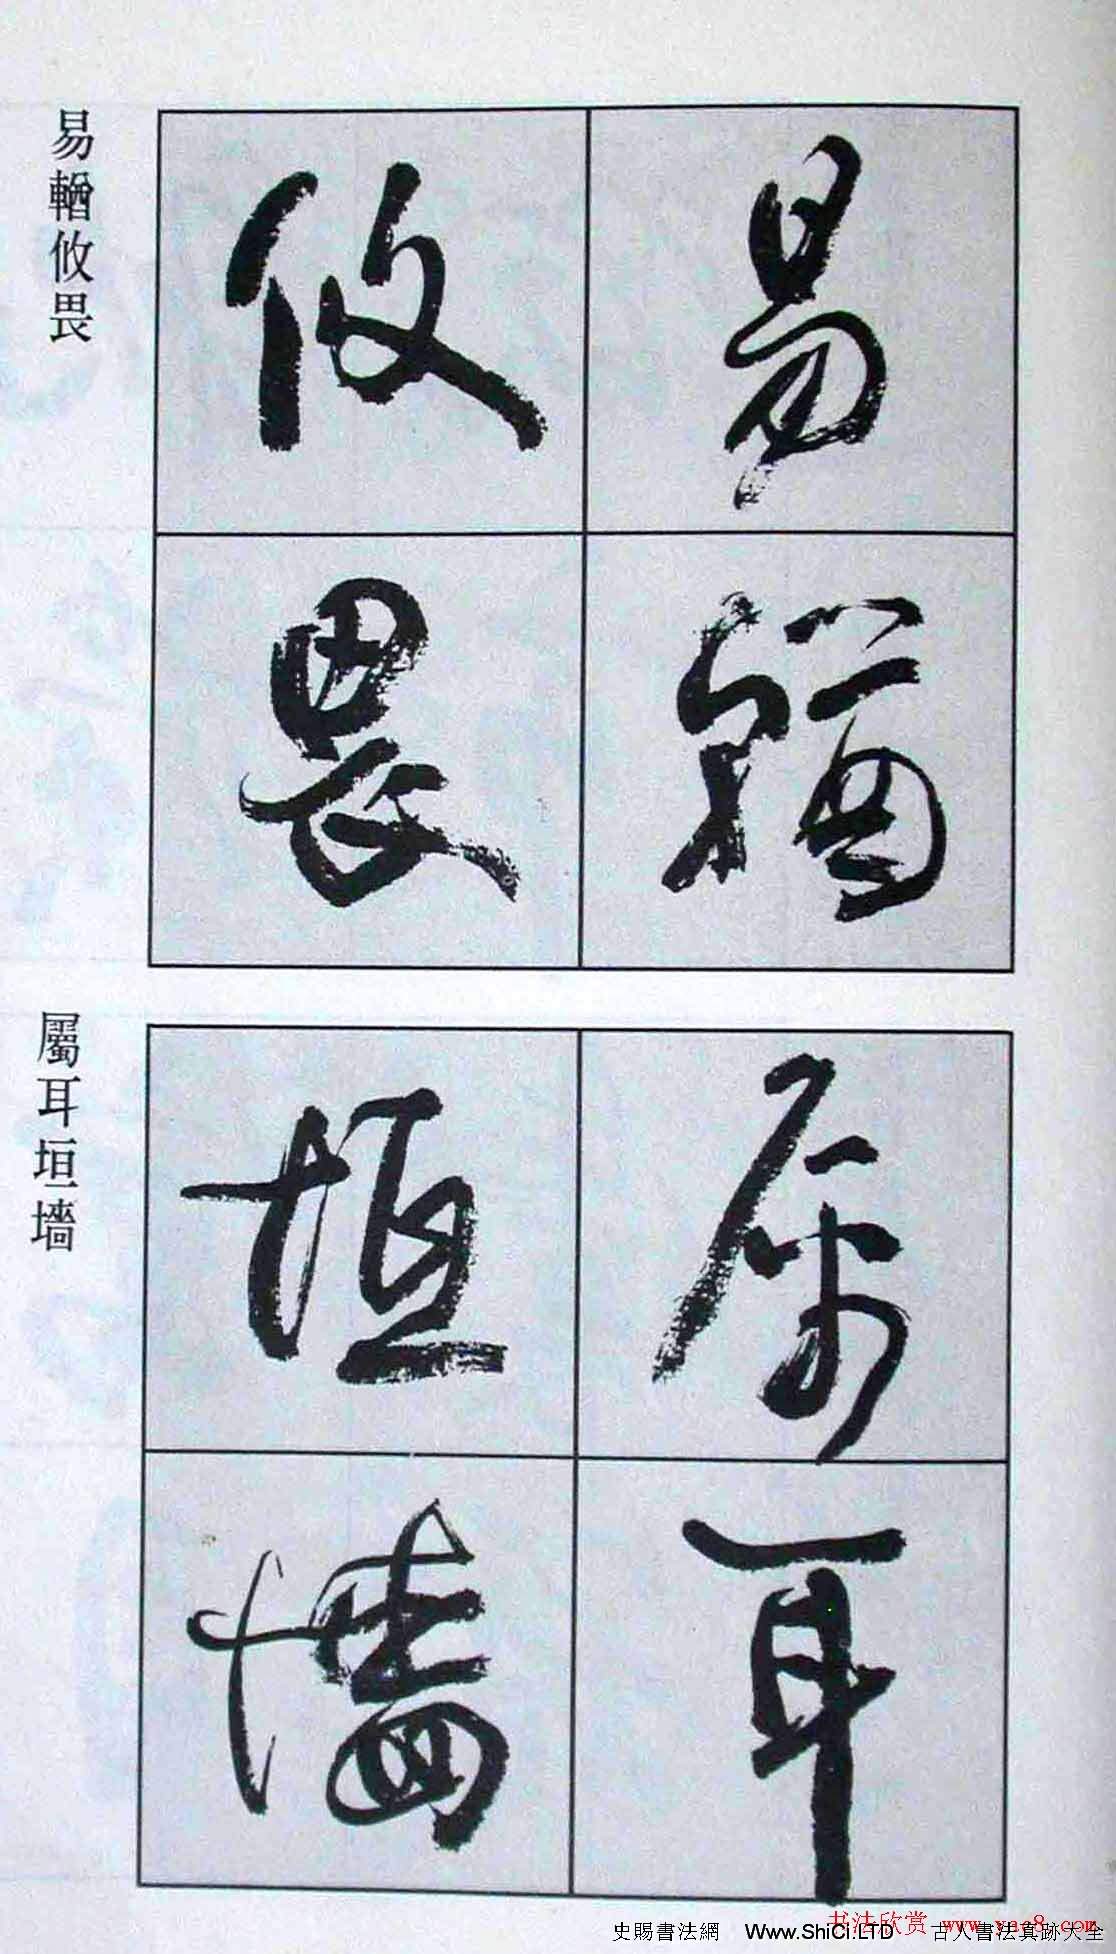 易輶攸畏
易輶
攸畏
屬耳垣墻
属耳
垣墻
书法欣赏 www.yac8.com
史賜書法網 Www.ShiCi.LTD 古人書法真跡大全